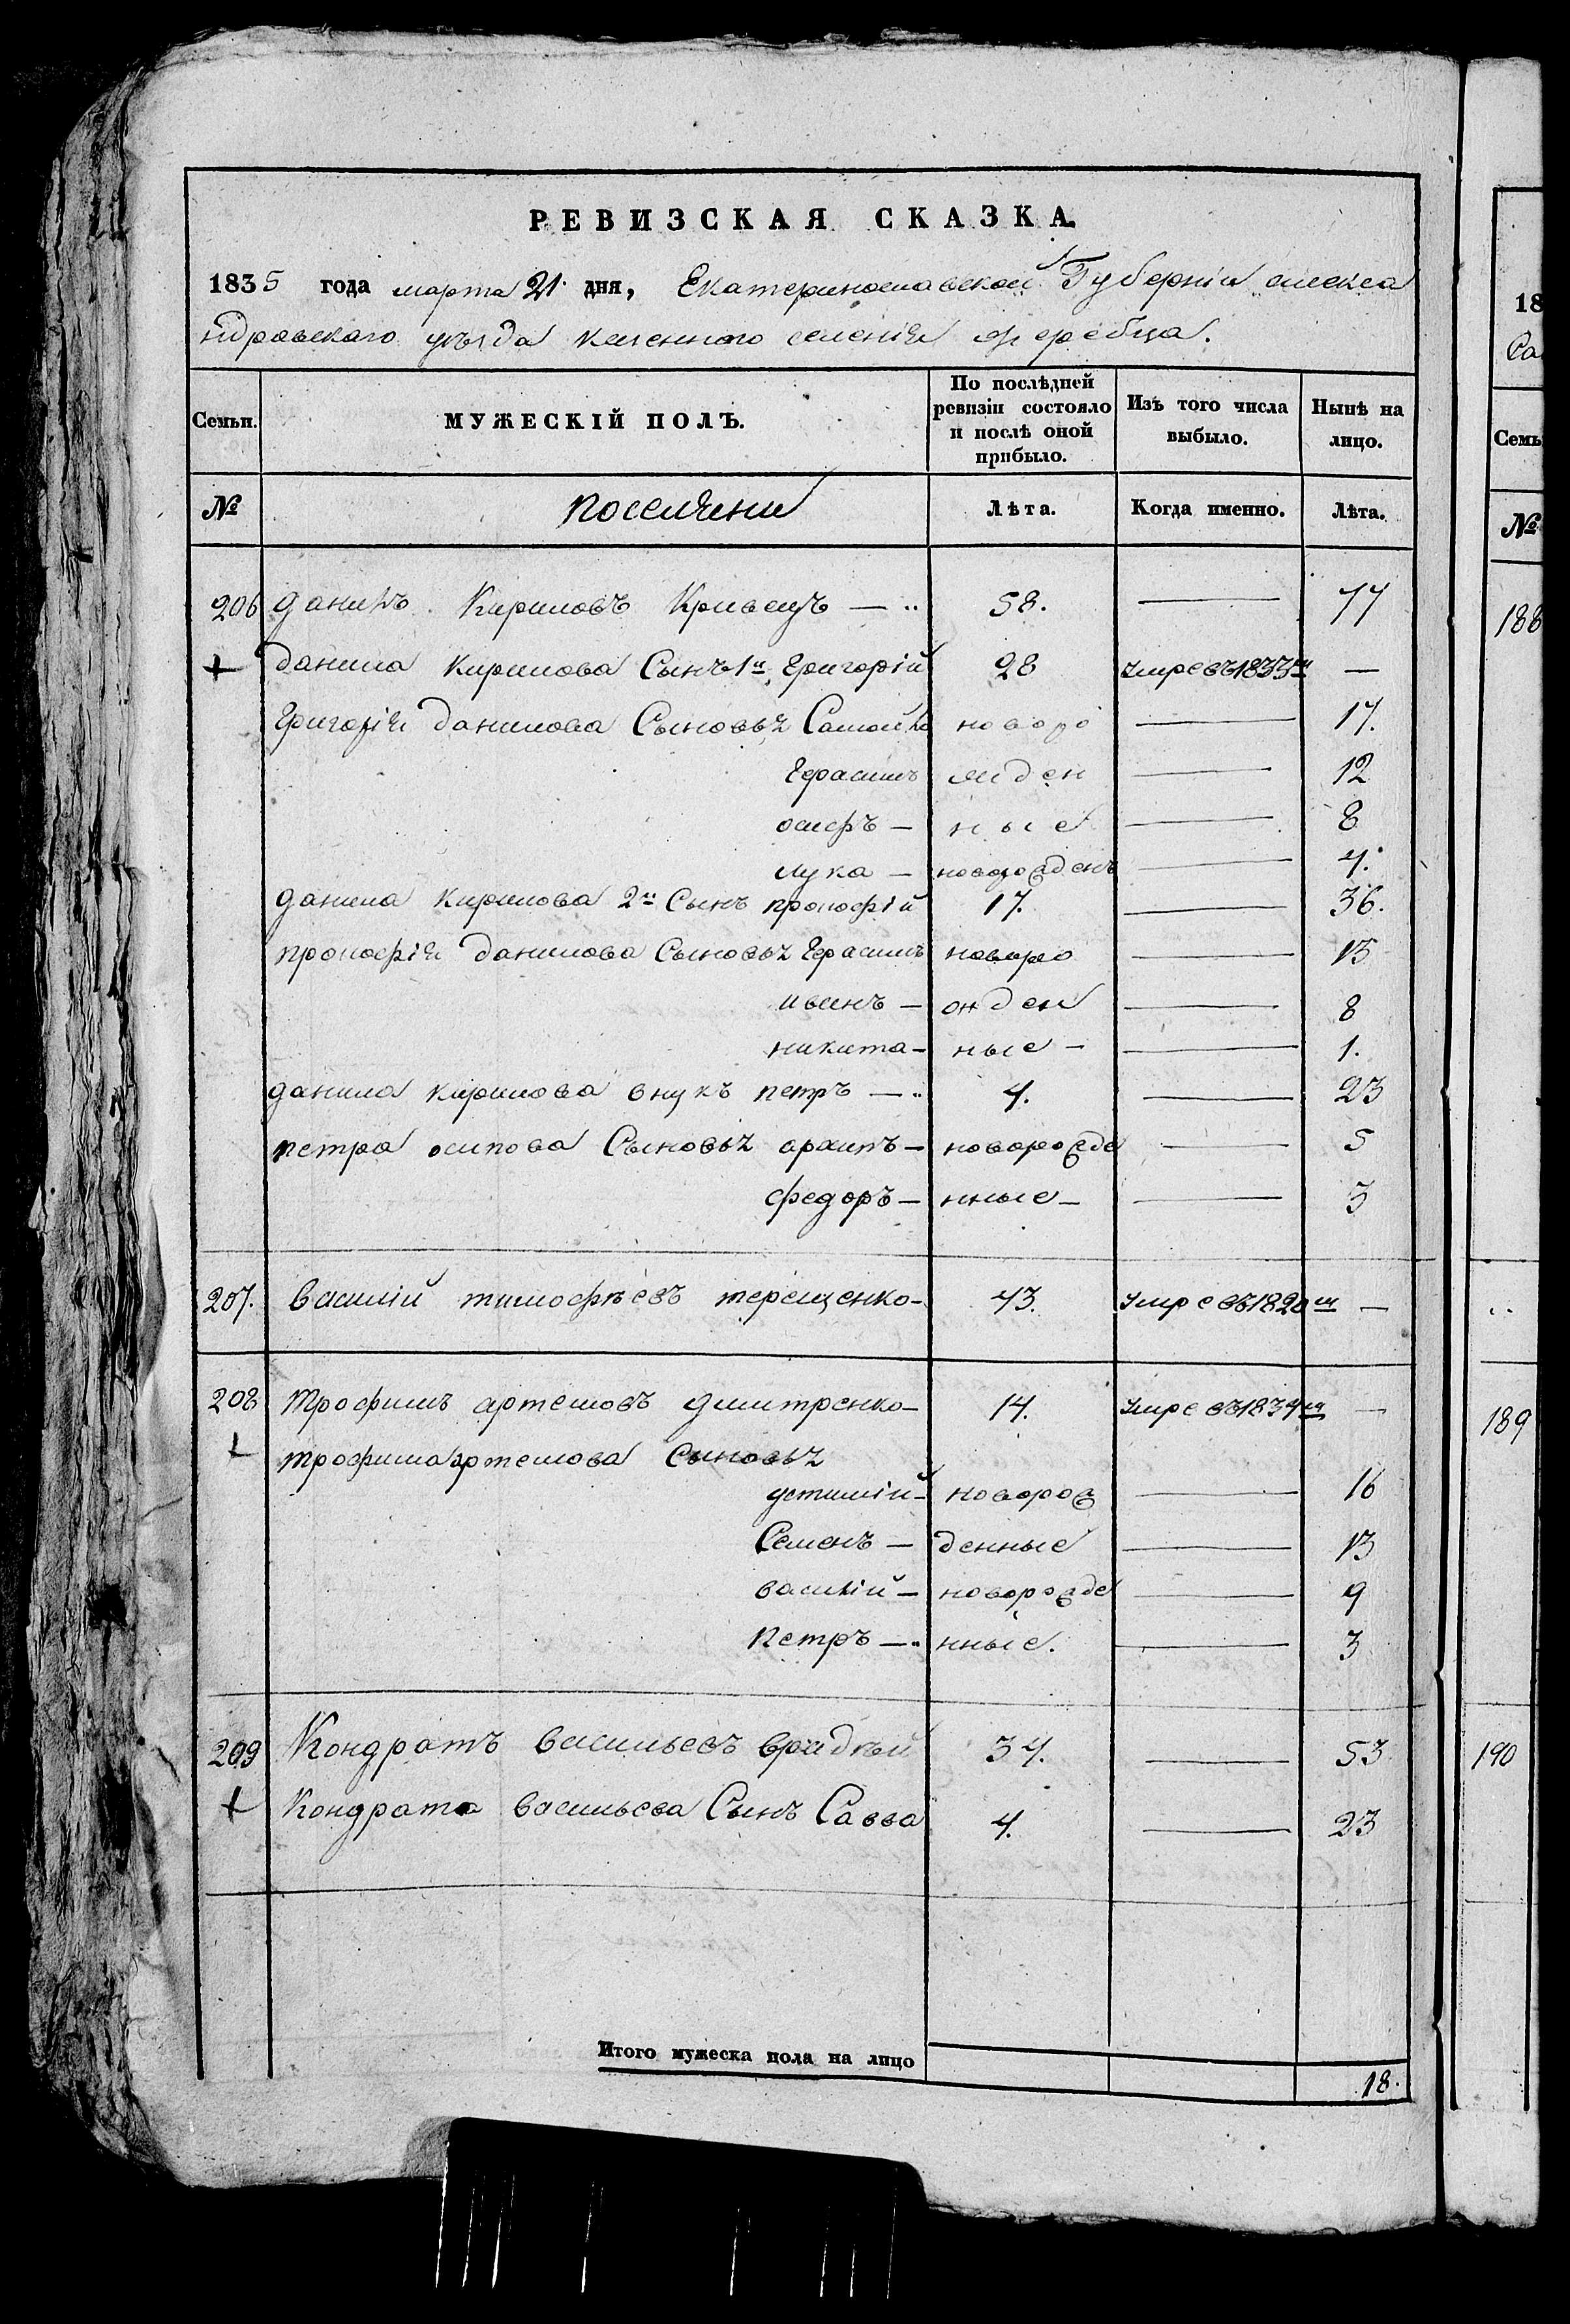 РЕВИЗСКАЯ СКАЗКА.
1835 года марта 21. дня, Екатеринославской Губерніи алекса
ндровскаго уѣзда казенного селенія жеребца.
Семьи. МУЖЕСКІЙ ПОЛЪ. По послѣдней ревизіи состояло и послѣ оной прибыло. Изъ того числа выбыло. Нынѣ на лицо.
№ поселяни Лѣта. Когда именно. Лѣта.
206 данилъ Кириловъ Кривецъ — 58. — 77
+ данила кирилова Сынъ 1й Григорій 28 Умре въ 1833м —
Григорія данилова Сыновья Самойло новоро — 17.
Герасимъ жден — 12
осифъ — ные — 8
лука — новорожденъ — 4.
данила кирилова 2й Сынъ прокофій 17. — 36.
прокофія данилова Сыновья Герасимъ новоро — 13
иванъ — жден — 8
никита — ные — — 1.
данила кирилова внукъ петръ — 4. — 23
петра осипова Сыновья архипъ — новорожде — 5
федоръ — нные — — 3
207. василій тимофѣевъ терещенко — 43. Умре въ 1820м —
208 трофимъ артемовъ дмитренко — 14. Умре въ 1834м —
+ трофима артемова Сыновья
устимій — новорож — 16
Семенъ — денные — 13
василій — новорожде — 9
петръ — нные. — 3
209 Кондратъ васильевъ 34. — 53
+ Кондрата васильева Сынъ Савва 4. — 23
Итого мужеска пола на лицо 18.
18
Са
Семь
№
188
189
190